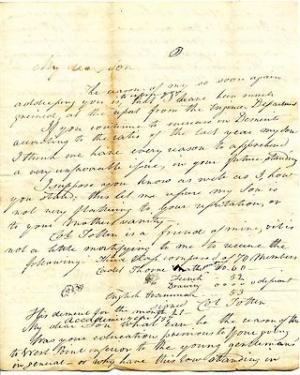 My dear son
The reason of my so soon again
addressing you is, that I have been much
grieved, at the report from the Engineer Department
If you continue to increase in Demerit
according to the rates of the last year my son
I think we have every reason to apprehend
a very unfavorable issue, in your future standing
I suppose you know as well as I, how
you stand, this let me assure my Son is
not very flattering to your reputation, or
to your Mothers vanity
Col Totten is a friend of mine, it is
not a little mortifying to me to receive the
following. Third Class composed of 70 Members
Cadet Thorne No 60
French
Drawing deficient
English Grammar
Signed Col Totten
His demerit for the month 21
Academic year 132
My dear Son what can be the reason of this
Was your education previous to your going
to West Point inferior to the young gentlemen
in general - or why have this low standing in